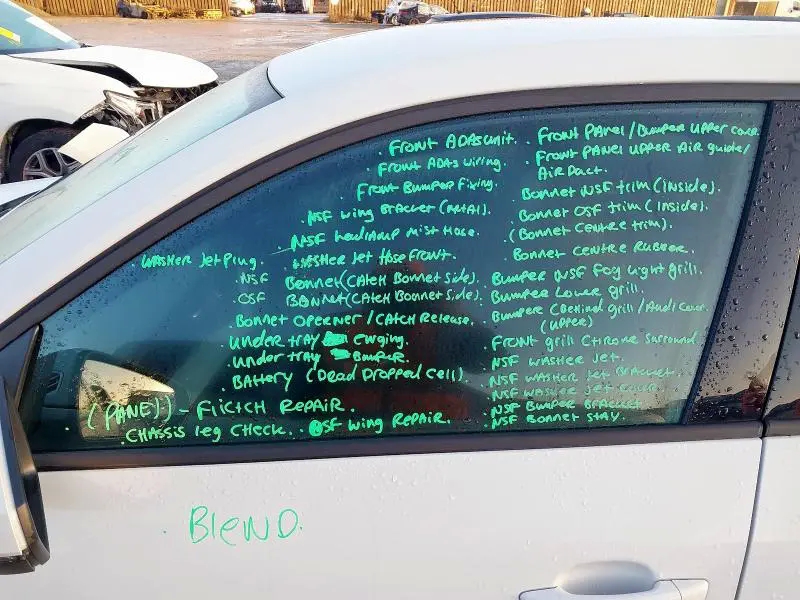 . Front ADAS unit.
. Front ADAS wiring.
. Front Bumper Fixing.
. NSF wing Bracket (metal).
. NSF headlamp mist Hose.
. WASHER Jet Plug.
. WASHER Jet Hose Front.
. NSF Bonnet (CATCH Bonnet Side).
. OSF BONNET (CATCH Bonnet Side).
. Bonnet Opener / CATCH Release.
. Under tray
. Under tray Bumper.
. BATTERY (Dead Dropped Cell).
. (PANEL) - FLITCH REPAIR.
. CHASSIS Leg CHeck.
. OSF wing REPAIR.
. Front PANEL / Bumper UPPER cover.
. Front PANEL UPPER AIR guide/
AIR Duct.
. Bonnet NSF trim (inside).
. Bonnet OSF trim (inside).
. (Bonnet CENTRE trim).
. Bonnet CENTRE RUBBER.
. Bumper NSF Fog Light grill.
. Bumper Lower grill.
. Bumper (Behind grill / Audi Cover.
(UPPER)
. FRONT grill CHROME Surround.
. NSF WASHER Jet.
. NSF WASHER Jet BRACKET.
. NSF WASHER Jet COVER.
. NSF BUMPER BRACKET
. NSF BONNET STAY.
. Blend.